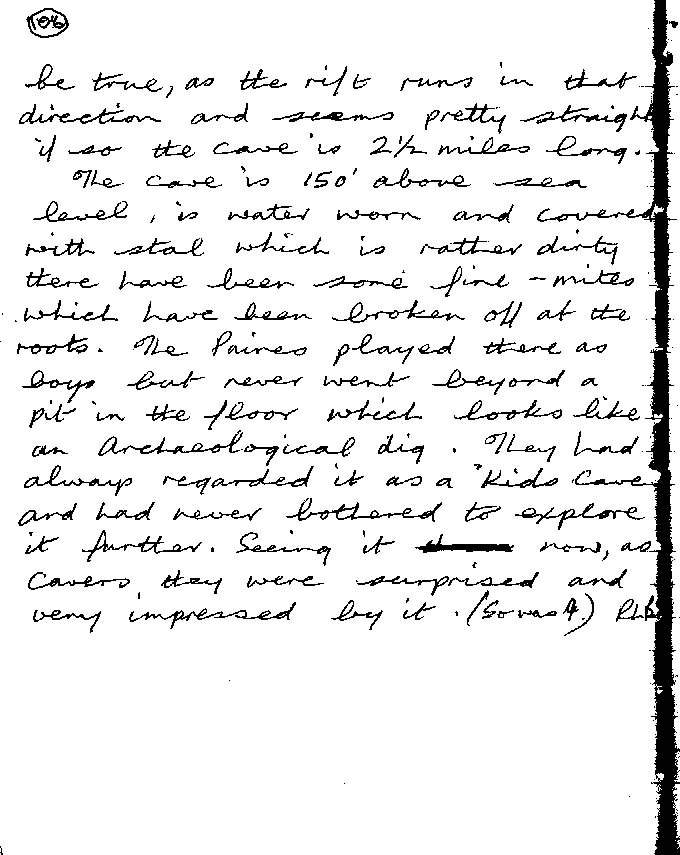 106
be true, as the rift runs in that
direction and seems pretty straight
if so the cave is 2½ miles long.
The cave is 150' above sea
level, is water worn and covered
with stal which is rather dirty
there have been some fine -mites
which have been broken off at the
roots. The Paines played there as
boys but never went beyond a
pit in the floor which looks like
an Archaeological dig. They had
always regarded it as a "Kids Cave
and had never bothered to explore
it further. Seeing it now, as
Cavers, they were surprised and
very impressed by it. (So was I.) RLB